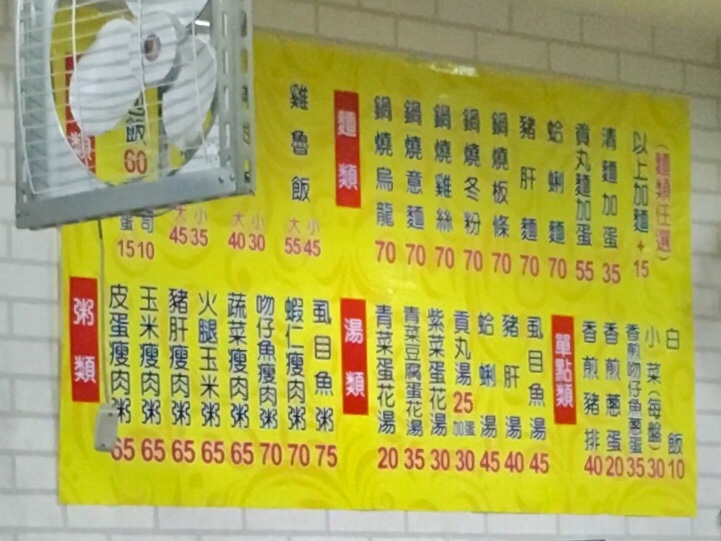 飯
60
蛋 司
15 10
大 小
45 35
大 小
40 30
雞魯飯
大 小
55 45
麵類
鍋燒烏龍 70
鍋燒意麵 70
鍋燒雞絲 70
鍋燒冬粉 70
鍋燒板條 70
豬肝麵 70
蛤蜊麵 70
貢丸麵加蛋 55
清麵加蛋 35
以上加麵+15
(麵類任選)
粥類
皮蛋瘦肉粥 65
玉米瘦肉粥 65
豬肝瘦肉粥 65
火腿玉米粥 65
蔬菜瘦肉粥 65
吻仔魚瘦肉粥 70
蝦仁瘦肉粥 70
虱目魚粥 75
湯類
青菜蛋花湯 20
青菜豆腐蛋花湯 35
紫菜蛋花湯 30
貢丸湯 25
加蛋 30
蛤蜊湯 45
豬肝湯 40
虱目魚湯 45
單點類
香煎豬排 40
香煎蔥蛋 20
香煎吻仔魚蔥蛋 35
小菜(每盤) 30
白飯 10